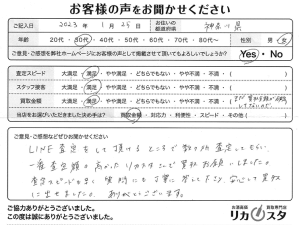 お客様の声をお聞かせください
ご記入日 2023年 1月 25日 お住いの都道府県 神奈川県
年齢 20代・30代・40代・50代・60代・70代・80代～ 性別 男・女
ご意見・ご感想を弊社ホームページにお客様の声として掲載させて頂いてもよろしいでしょうか? Yes・No
査定スピード 大満足・満足・やや満足・どちらでもない・やや不満・不満・( )
スタッフ接客 大満足・満足・やや満足・どちらでもない・やや不満・不満・( )
買取金額 大満足・満足・やや満足・どちらでもない・やや不満・不満・(
当店をお選びいただきました決め手は? 買取金額・対応力・利便性・スピード・その他( )
ご意見・ご感想などぜひお聞かせください
LINE査定をして頂けるところで数カ所査定してもらい
一番査定額の高かったリカスタさんで買取お願いしました。
査定スピードも早く 質問にも丁寧に答えて下さり安心して買取
に出せました。ありがとうございます。
ご協力ありがとうございました。
この度は誠にありがとうございました。
お酒高価買取専門店
リカスタ